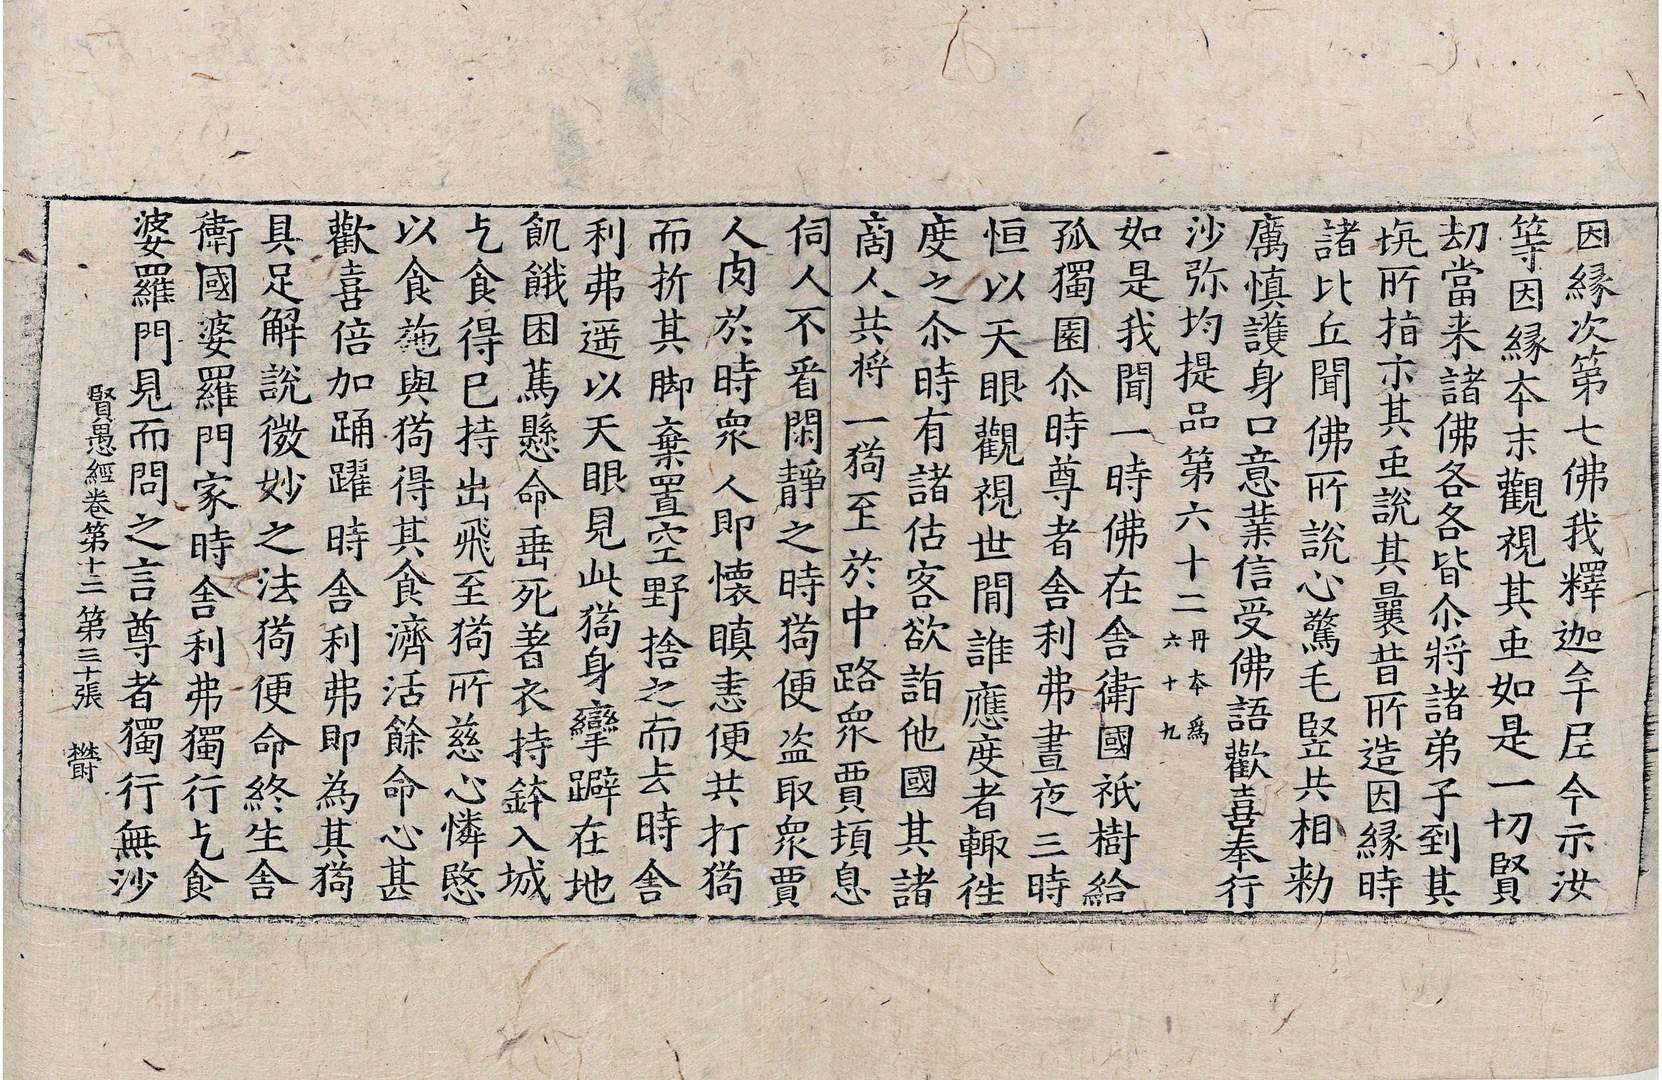 因縁次第七佛我釋迦牟尼今示汝
等因縁夲末觀視其重如是一切賢
劫當来諸佛各各皆尒將諸弟子到其
埦所指示其重說其曩昔所造因縁時
諸比丘聞佛所說心驚毛竪共相勑
厲慎護身口意業信受佛語歡喜奉行
沙弥均提品第六十二丹夲爲六十九
如是我聞一時佛在舍衛國祇樹給
孤獨園尒時尊者舍利弗晝夜三時
恒以天眼觀視世間誰應度者輙徃
度之尒時有諸估客欲詣他國其諸
啇人共将一猗至於中路衆賈頓息
伺人不看閑靜之時猗便盗取衆賈
人肉於時衆人即懐瞋恚便共打猗
而折其脚棄置空野捨之而去時舍
利弗遥以天眼見此猗身攣躃在地
飢餓困萬懸命垂死著衣持鉢入城
乞食得已持出飛至猗所慈心憐愍
以食施與猗得其食濟活餘命心甚
歡喜倍加踊躍時舍利弗即為其猗
具足解說微妙之法猗便命終生舍
衛國婆羅門家時舍利弗獨行乞食
婆羅門見而問之言尊者獨行無沙
賢愚經卷第十二 第三十張 欝